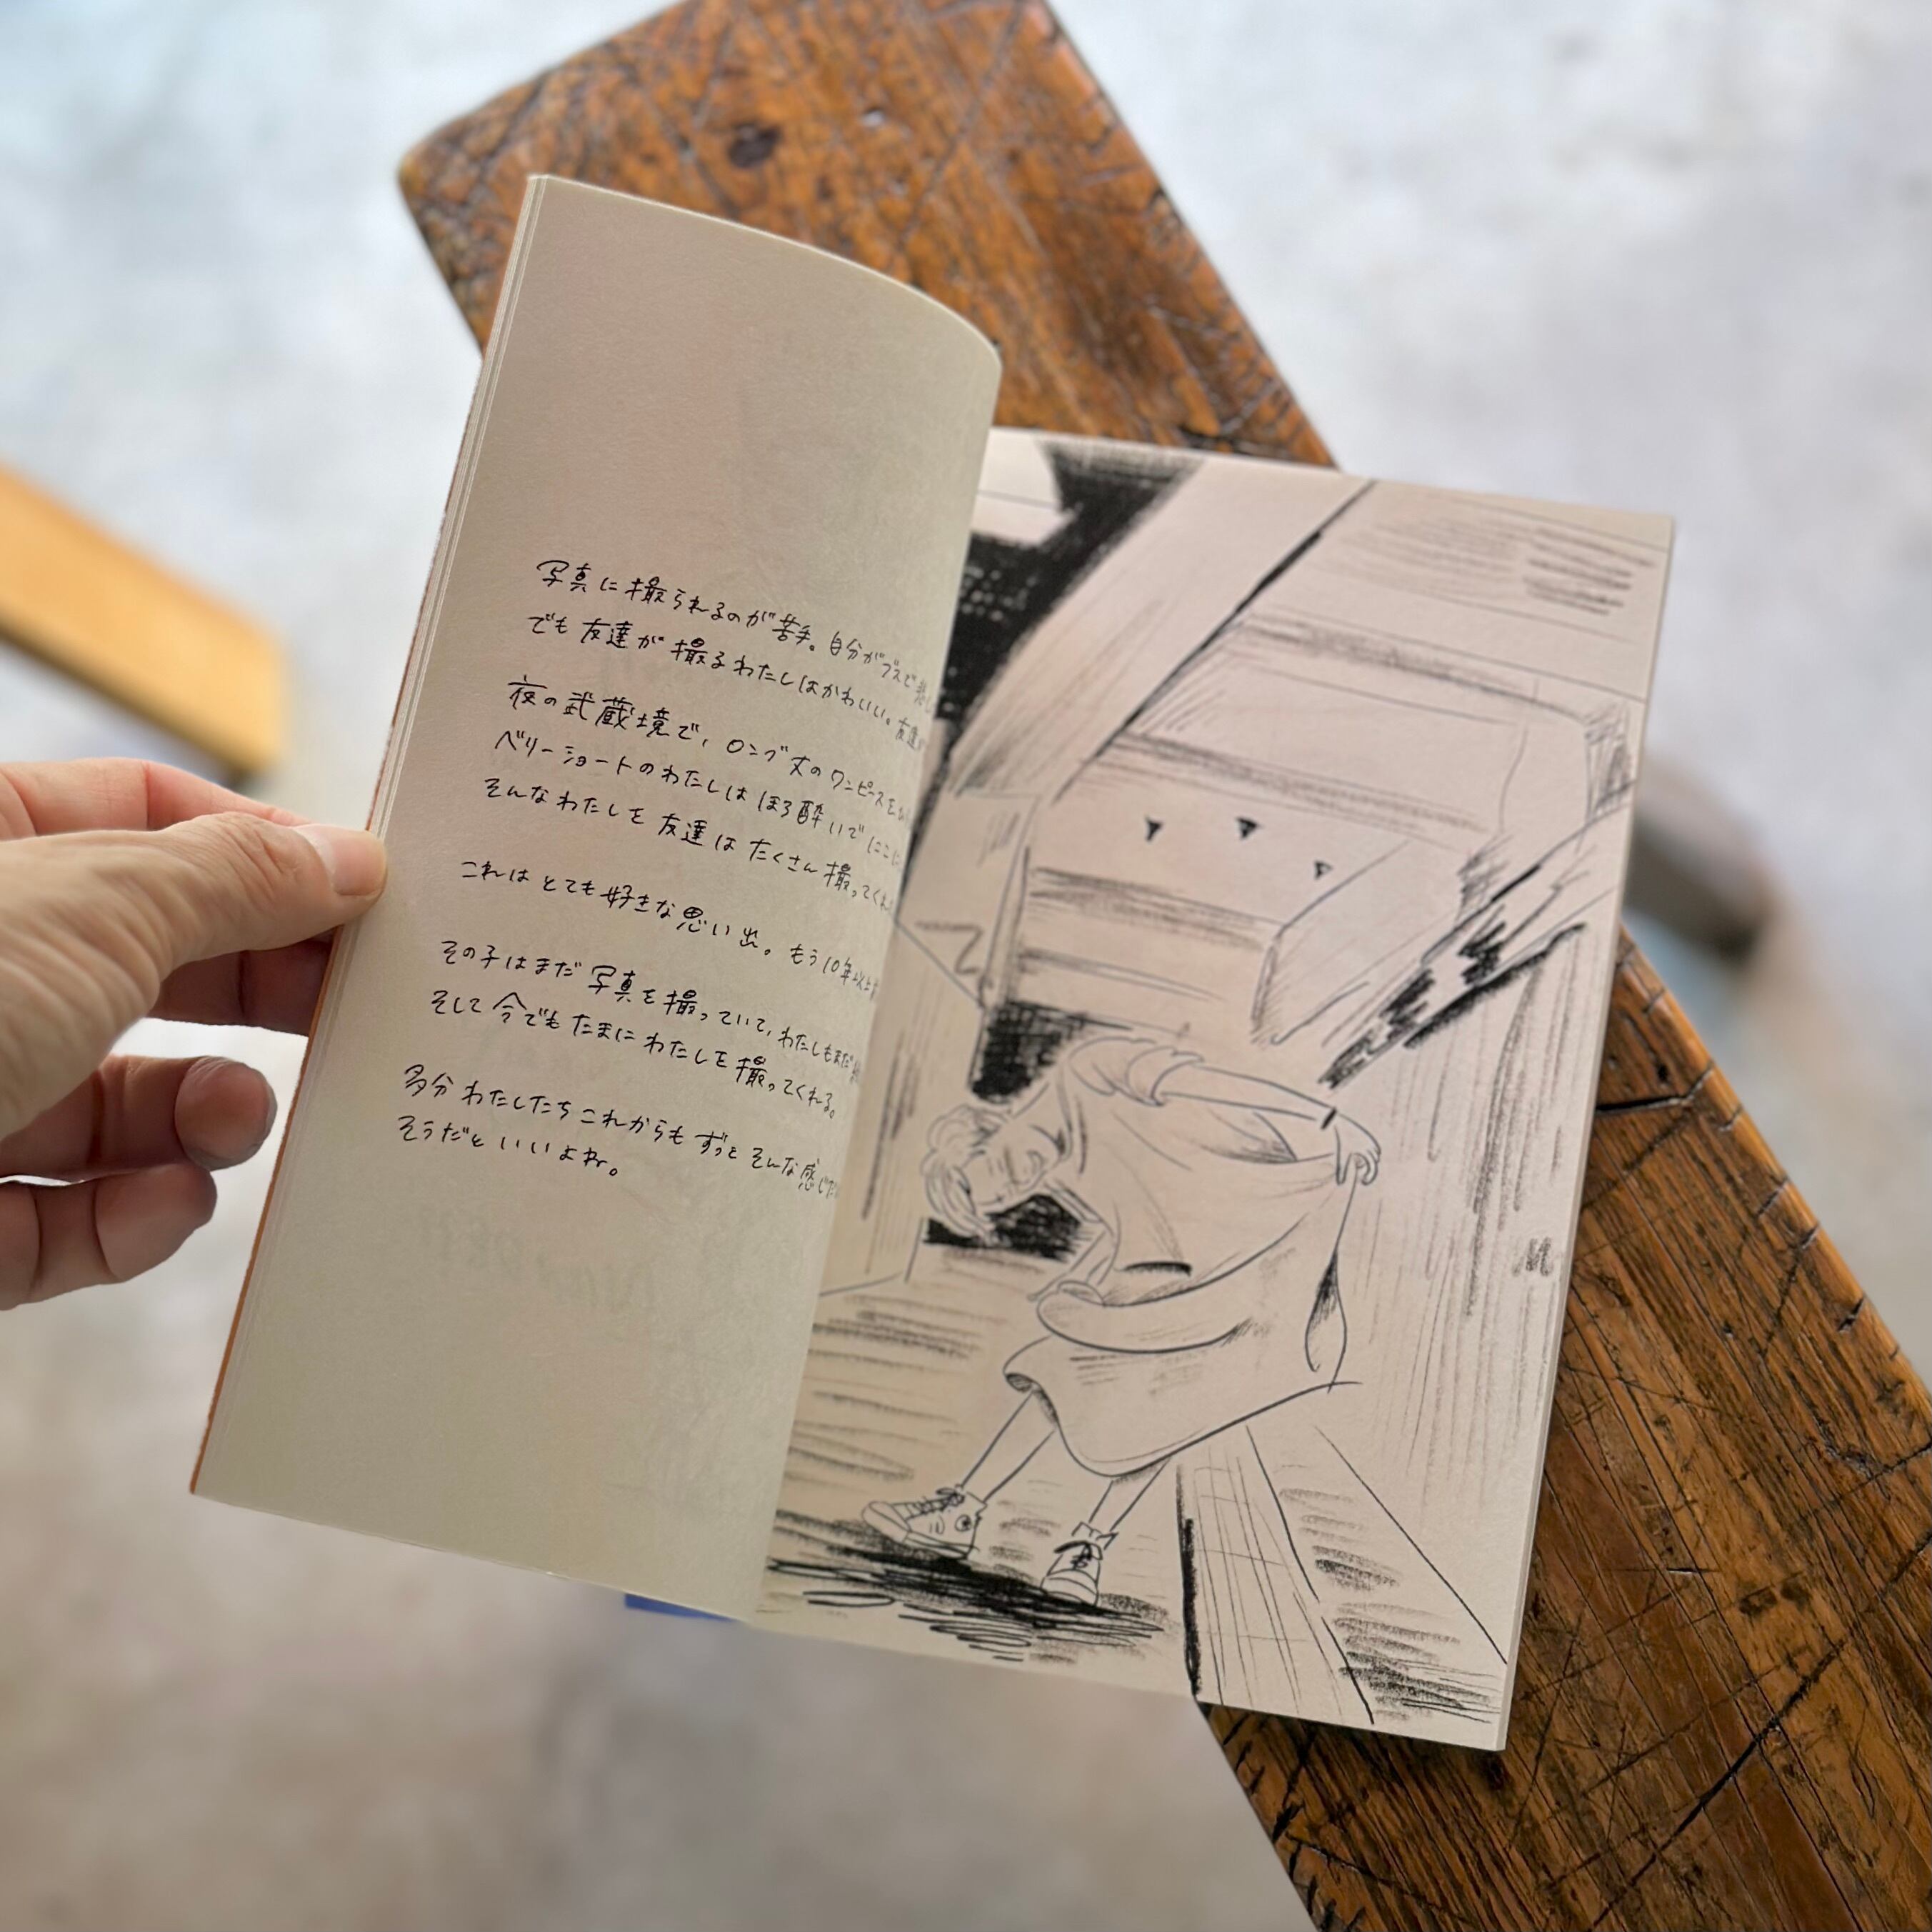 写真に撮られるのが苦手。自分がブスで悲し
でも友達が撮るわたしはかわいい。友達が
夜の武蔵境で、ロング丈のワンピースを
ベリーショートのわたしはほろ酔いでにこに
そんなわたしを友達はたくさん撮ってくれ
これはとても好きな思い出。もう10年以上
その子はまだ写真を撮っていて、わたしもまだ
そして今でもたまにわたしを撮ってくれる。
多分わたしたちこれからもずっとそんな感じだ
そうだといいよね。